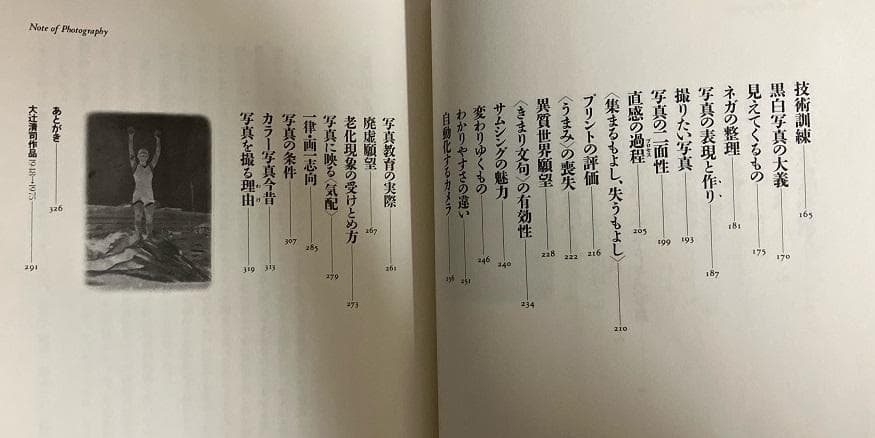 技術訓練 165
黒白写真の大義 170
見えてくるもの 175
ネガの整理 181
写真の表現と作り 187
撮りたい写真 193
写真の二面性 199
直感の過程 205
プロセス
〈集まるもよし、失うもよし〉 210
プリントの評価 216
〈うまみ〉の喪失 222
異質世界願望 228
〈きまり文句〉の有効性 234
サムシングの魅力 240
変わりゆくもの 246
わかりやすさの違い 251
自動化するカメラ 256
Note of Photography
写真教育の実際 261
廃虚願望 267
老化現象の受けとめ方 273
写真に映る〈気配〉 279
一律・画一志向 285
写真の条件 307
カラー写真今昔 313
写真を撮る理由 319
わけ
あとがき 326
大辻清司作品 1948–1975 291